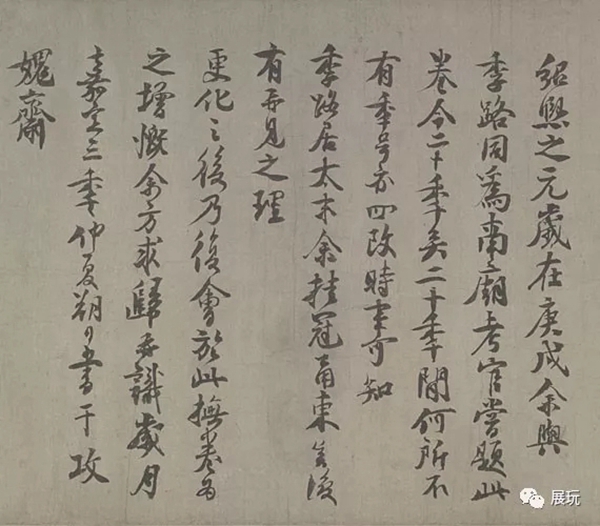 紹熙之元歲在庚戌余與
季路同為南廟考官嘗題此
卷今二十年矣二十年間何所不
有年号亦四改時事可知
季路居太末余挂冠甬東豈復
有再見之理
更化之後乃復會於此撫卷為
之增慨余方求歸再識歲月
嘉定三年仲夏朔日書于攻
媿齋
展玩